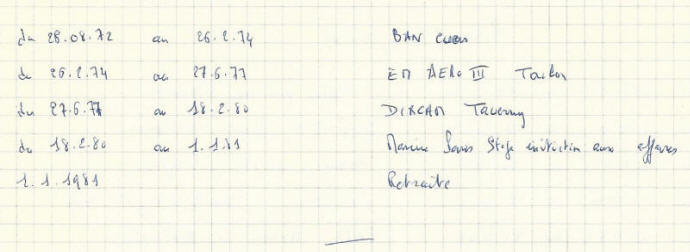 du 28.08.72 au 26.2.74 BAN Cuers
du 26.2.74 au 27.6.77 EM AERO III Toulon
du 27.6.77 au 18.2.80 DIRCAM Taverny
du 18.2.80 au 1.1.81 Marine Paris Stage initiation aux affaires
1.1.1981 Retraite